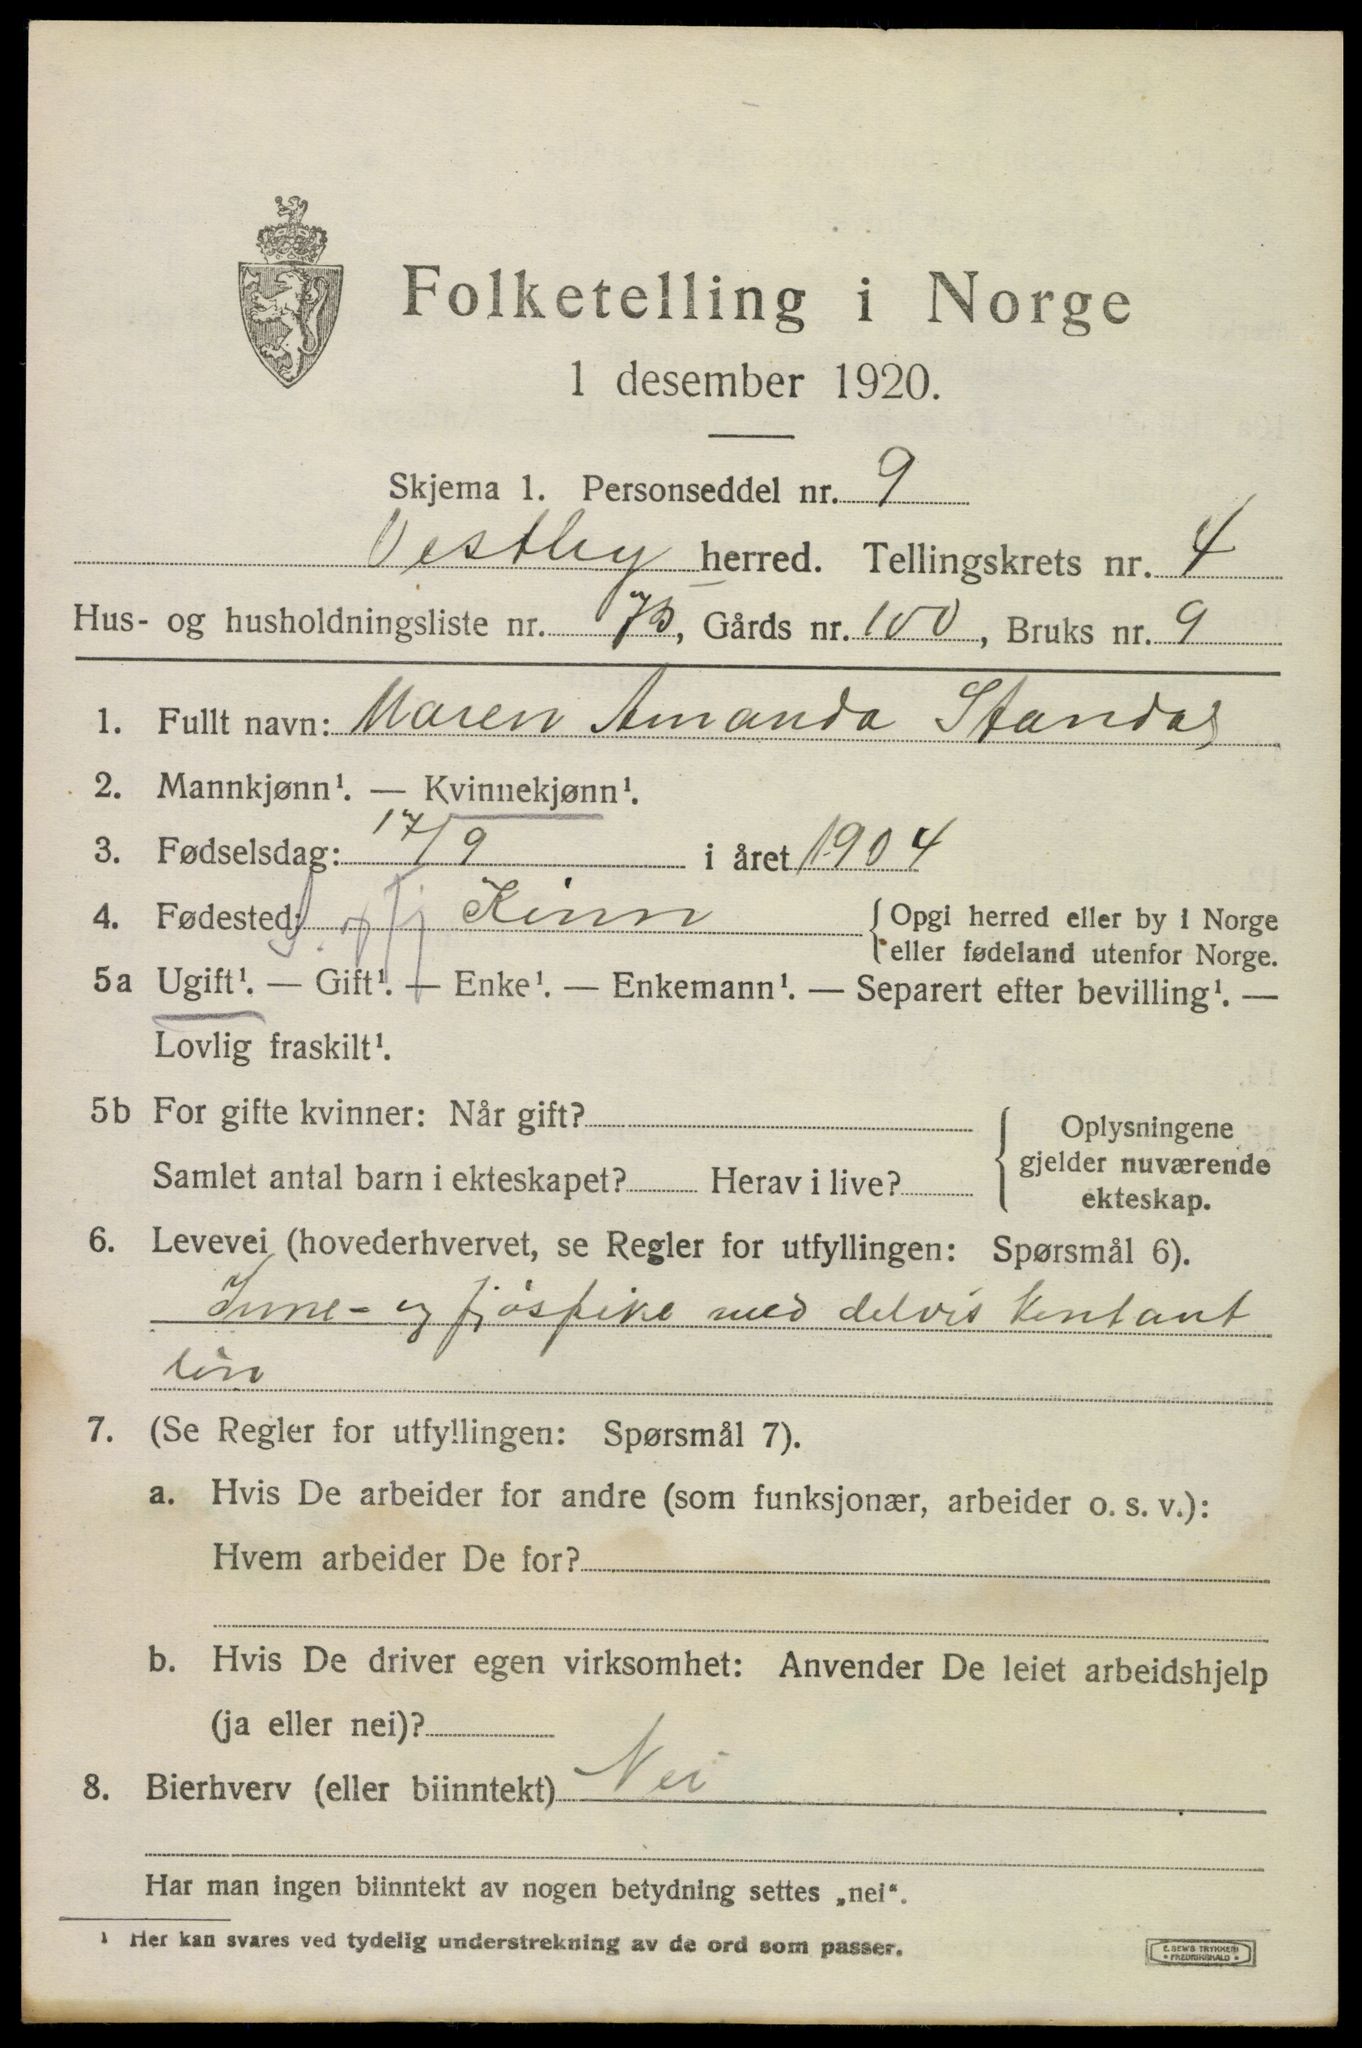 Folketelling i Norge
1 desember 1920.
Skjema 1. Personseddel nr. 9
Vestby herred. Tellingskrets nr. 4
Hus- og husholdningsliste nr. 73, Gårds nr. 100, Bruks nr. 9
1. Fullt navn: Maren Amanda Standal
2. Mannkjønn¹. — Kvinnekjønn¹.
3. Fødselsdag: 17/9 i året 1904
4. Fødested: S. ofj Kinn {Opgi herred eller by i Norge
eller fødeland utenfor Norge.
5a Ugift¹. — Gift¹. — Enke¹. — Enkemann¹. — Separert efter bevilling¹. —
Lovlig fraskilt¹.
5b For gifte kvinner: Når gift?
Samlet antal barn i ekteskapet? Herav i live?
{Oplysningene
gjelder nuværende
ekteskap.
6. Levevei (hovederhvervet, se Regler for utfyllingen: Spørsmål 6).
Inne- og fjøspike med delvis kontant
løn
7. (Se Regler for utfyllingen: Spørsmål 7).
a. Hvis De arbeider for andre (som funksjonær, arbeider o. s. v.):
Hvem arbeider De for?
b. Hvis De driver egen virksomhet: Anvender De leiet arbeidshjelp
(ja eller nei)?
8. Bierhverv (eller biinntekt) Nei
Har man ingen biinntekt av nogen betydning settes „nei“.
¹ Her kan svares ved tydelig understrekning av de ord som passer.
E. SEM'S TRYKKERI
• FREDRIKSHALD •